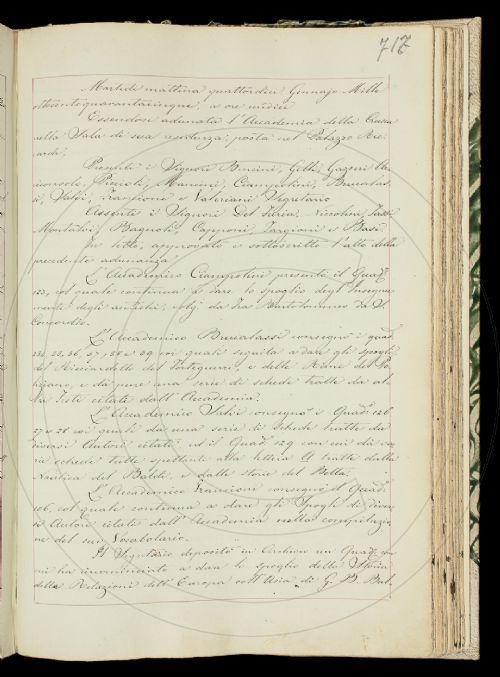 717
Martedi mattina quattordici Gennajo Mille
ottocentoquarantacinque, a ore undici
Essendosi adunata l'Accademia della Crusca
nella Sala di sua residenza, posta nel Palazzo Ric-
cardi,
Presenti i Signori Bencini, Gelli, Gazzeri Va
Puccioli, Mannini, Ciampolini, Brucalas-
si, Salvi, Franzioni e Valeriani Segretario
Assenti i Signori Del Furia, Niccolini,
Montalvi, Bagnoli, Capponi, Targioni e Basi.
Fu letto, approvato e sottoscritto l'atto della
precedente adunanza.
L'Accademico Ciampolini presentò il Quad.
123, col quale continua a dare lo spoglio degl'Insegna
menti degli antichi, volg. da Fra Bartolommeo da S.
Concordio.
L'Accademico Brucalassi consegnò i quad.
coi quali seguita a dare gli spogli
del Ricciardetto del Forteguerri, e delle Rime del Po
liziano, e dà pure una serie di schede tratte da al
tri Testi citati dall'Accademia.
L'Accademico consegnò i Quad. 126
27 e 28 coi quali dà una serie di schede tratte da
diversi Autori citati, ed il Quad. 129 con cui dà va
rie schede tutte spettanti alla lettera A tratte dalla
Nautica del Baldi, e dalle Storie del Botta.
L'Accademico Franzioni consegnò il Quad.
106, col quale continua a dare gli Spogli di diver
si Autori citati dall'Accademia nella compilazio
ne del suo Vocabolario.
Il Segretario depositò in Archivio un Quad. con
cui ha incominciato a dare lo spoglio della Storia
delle Relazioni dell'Europa coll'Asia di G. B. Bal-